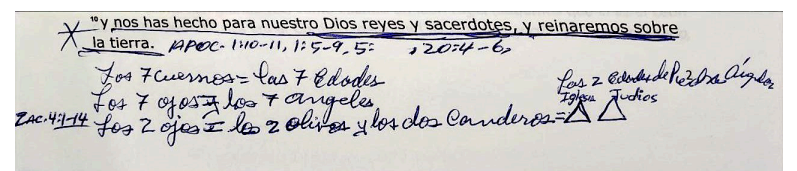 ¹⁰y nos has hecho para nuestro Dios reyes y sacerdotes, y reinaremos sobre
la tierra. APOC. 1:10-11, 1:5-9, 5: , 20:4-6,
Los 7 cuernos = las 7 Edades
Los 7 ojos = los 7 angeles
Zac. 4:1-14 Los 2 ojos = los 2 olivos y los dos Canderos =
Las 2 Edades de Piedra Ángular
Iglesia Judios